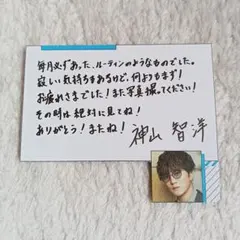 毎月必ずあった、ルーティンのようなものでした。
寂しい気持ちもあるけど、何よりもまず！
お疲れさまでした！また写真撮ってください！
その時は絶対に見てね！
ありがとう！またね！
神山 智洋